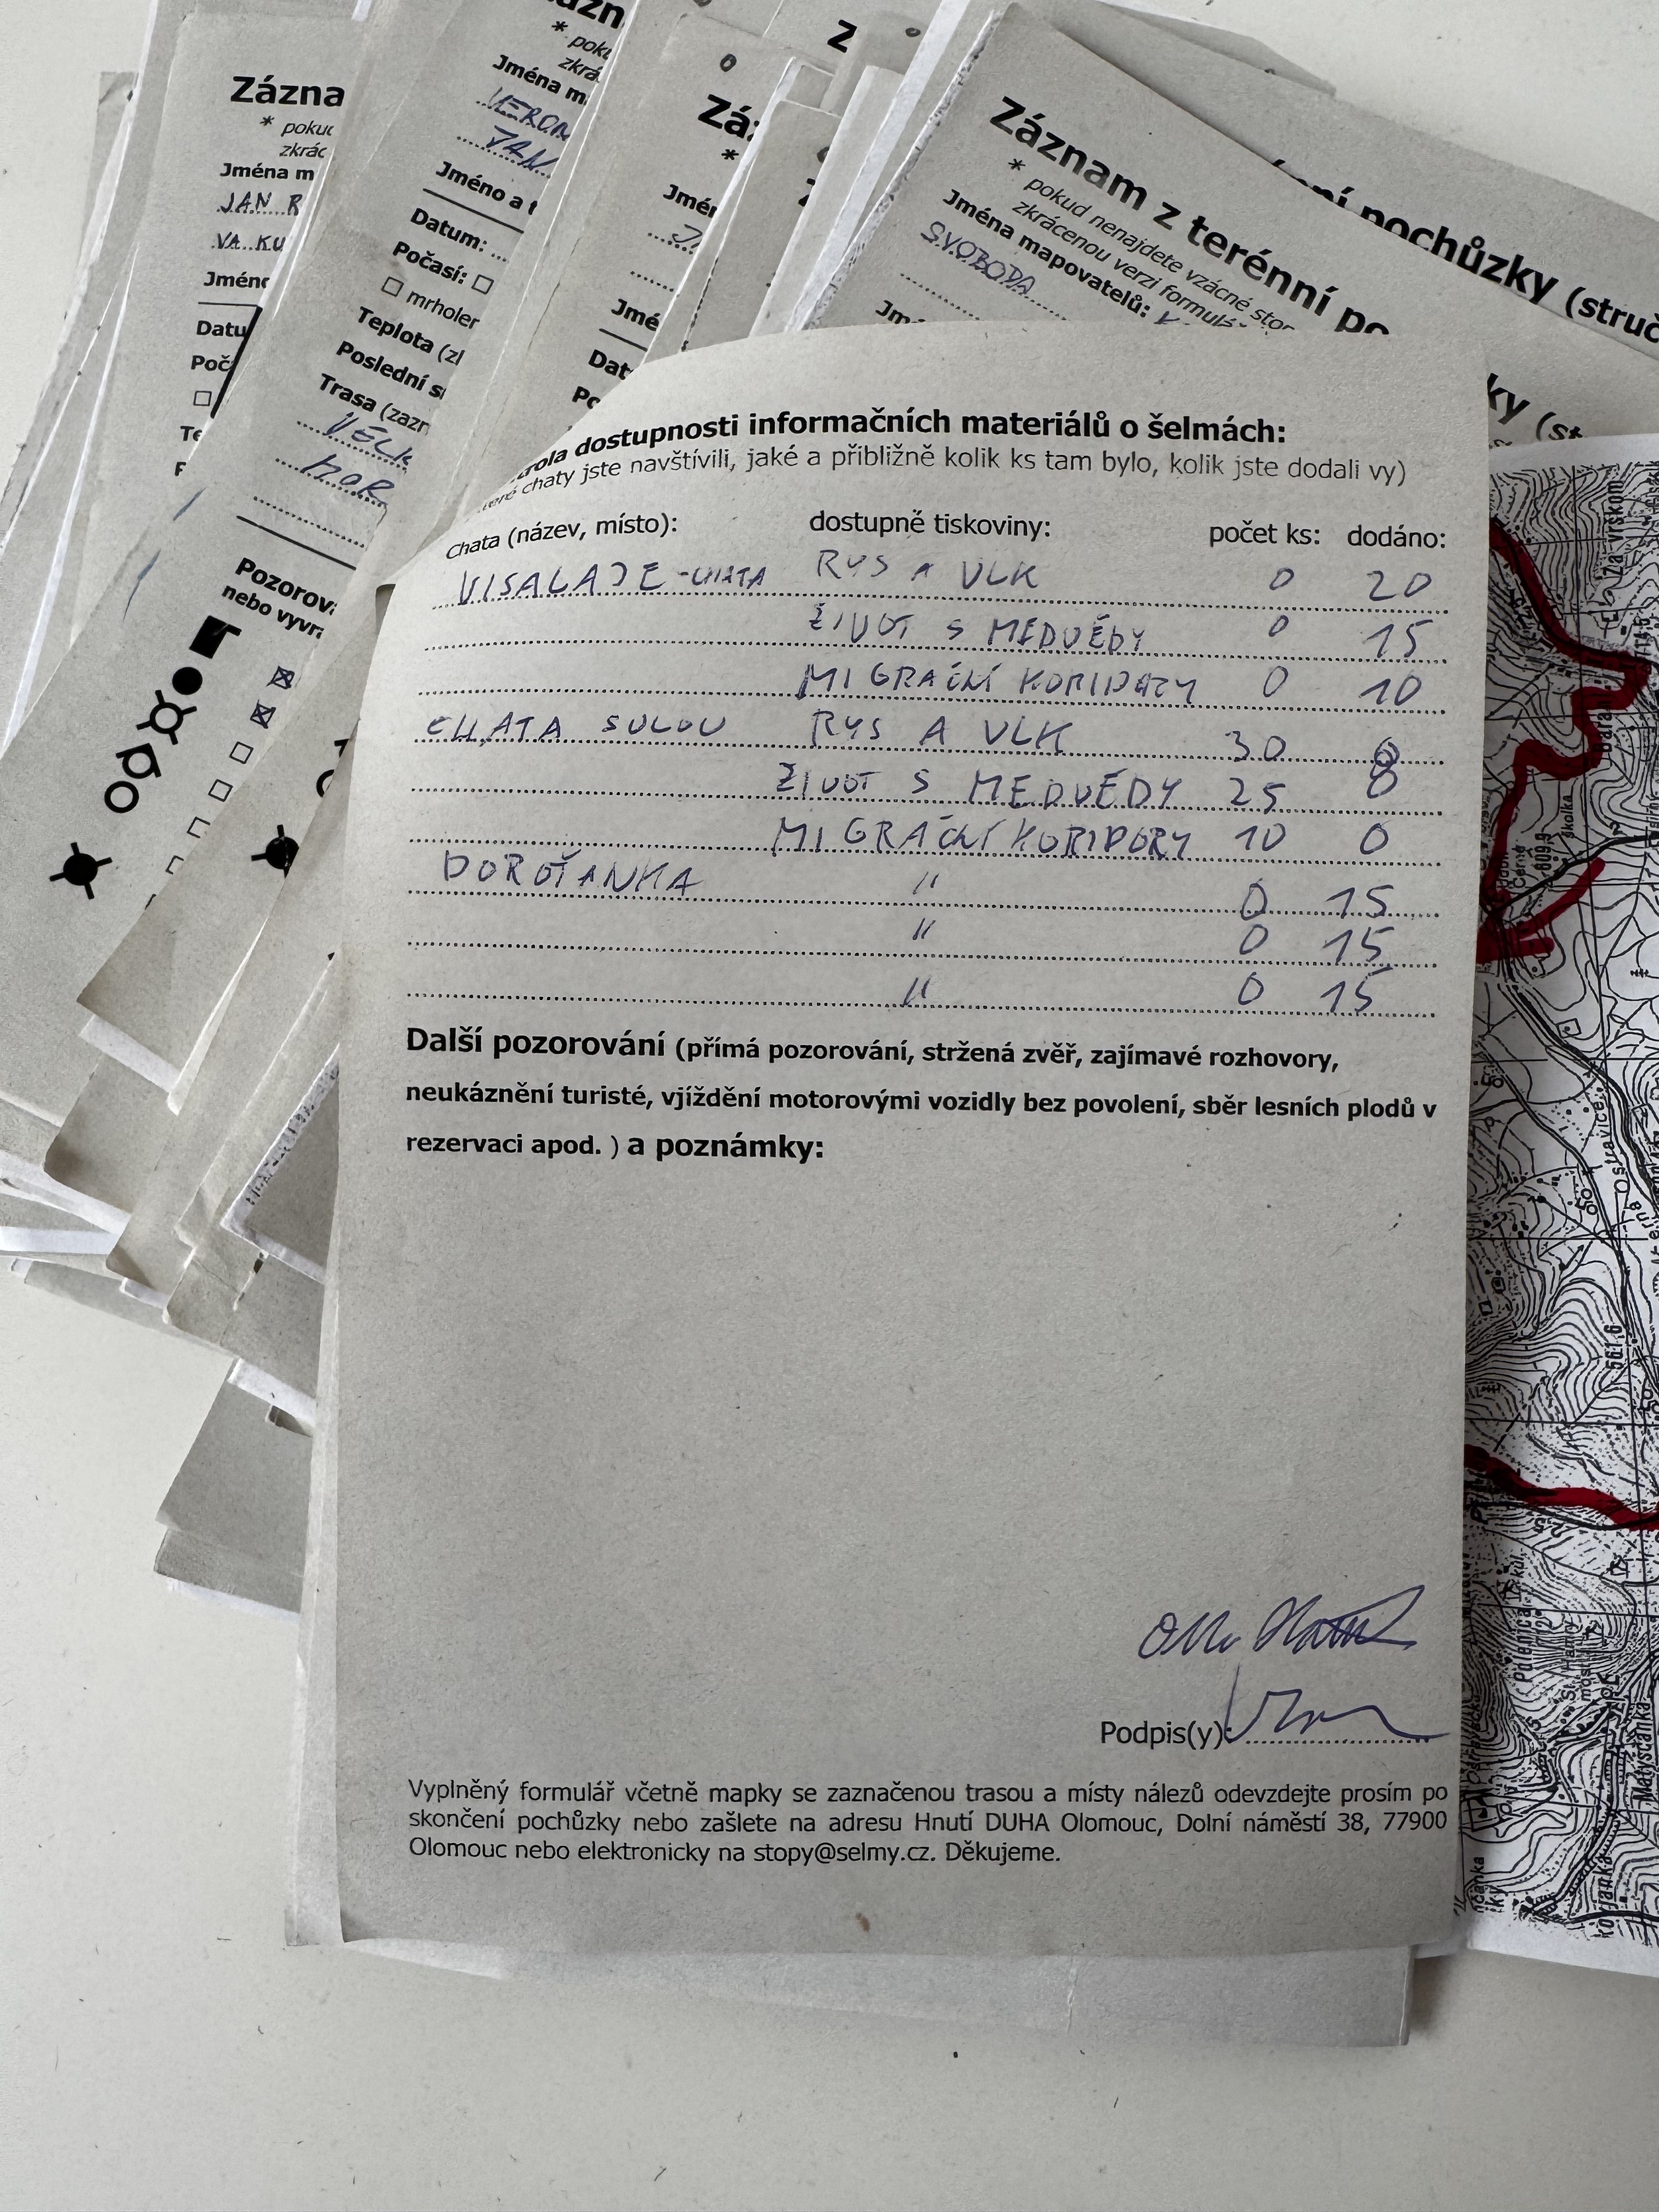 Zázna
* pokud
zkrác
Jména m
JAN R
VA. KU
Jméno
Datu
Poč
* pok
zkrá
Jména m
VERON
JAN
Jméno a t
Datum:
Počasí: □
□ mrholen
Teplota (zl
Poslední s
Trasa (zazn
VELK
HOR
Pozorova
nebo vyvra
Zá
*
Jmén
Jmé
Dat
Z
Záznam z terénní po
* pokud nenajdete vzácné stop
zkrácenou verzi formulá
Jména mapovatelů:
SVOBODA
ní pochůzky (struč
ky (st
rola dostupnosti informačních materiálů o šelmách:
eré chaty jste navštívili, jaké a přibližně kolik ks tam bylo, kolik jste dodali vy)
Chata (název, místo): dostupné tiskoviny: počet ks: dodáno:
VISALAJE-CHATA RYS A VLK 0 20
ŽIVOT S MEDVĚDY 0 15
MIGRAČNÍ KORIDORY 0 10
CHATA SULOV RYS A VLK 30 0
ŽIVOT S MEDVĚDY 25 8
MIGRAČNÍ KORIDORY 10 0
DOROŤANKA " 0 15
" 0 15
" 0 15
Další pozorování (přímá pozorování, stržená zvěř, zajímavé rozhovory,
neukáznění turisté, vjíždění motorovými vozidly bez povolení, sběr lesních plodů v
rezervaci apod. ) a poznámky:
Podpis(y):
Vyplněný formulář včetně mapky se zaznačenou trasou a místy nálezů odevzdejte prosím po
skončení pochůzky nebo zašlete na adresu Hnutí DUHA Olomouc, Dolní náměstí 38, 77900
Olomouc nebo elektronicky na stopy@selmy.cz. Děkujeme.
Za vrškom
škôlka
809,9
Ostravice
561,6
Matyščanka